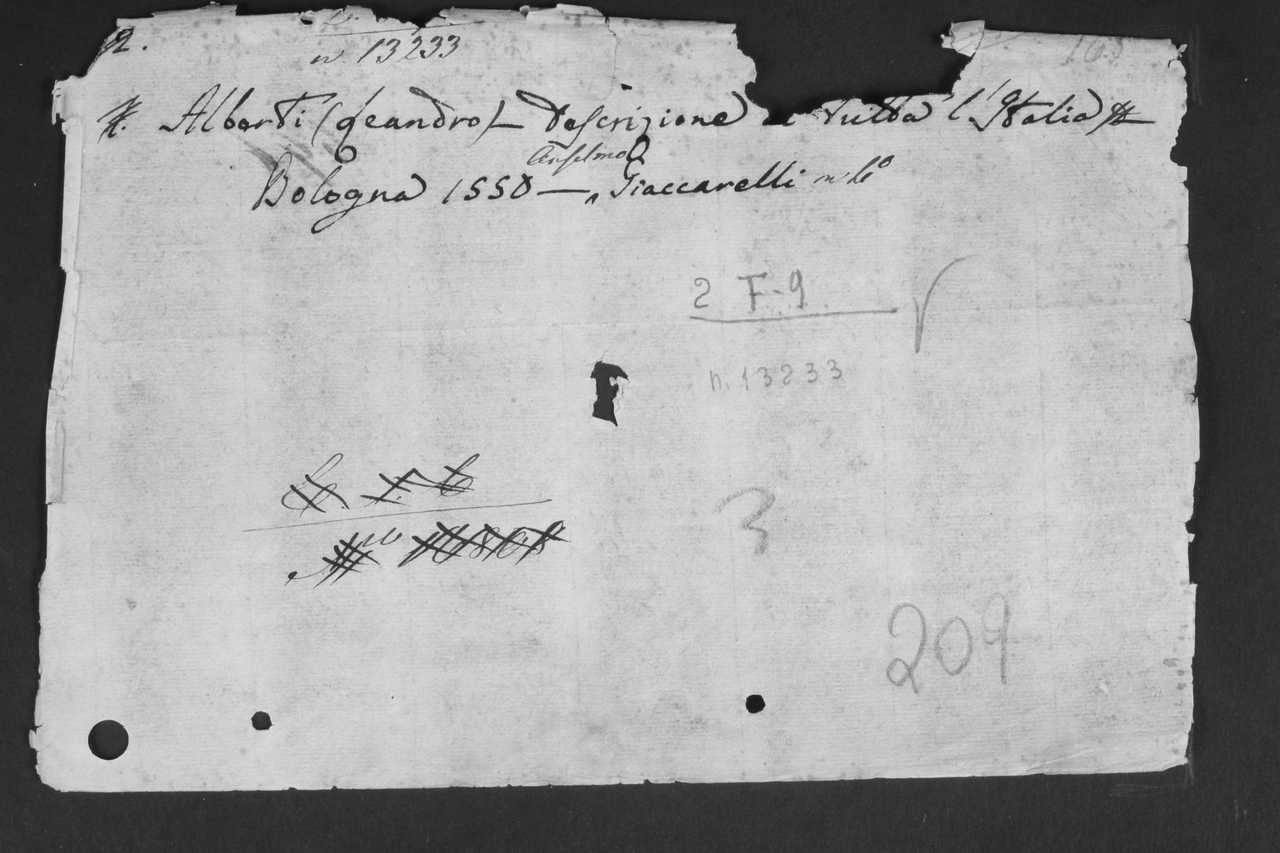 2.
n. 13233
Alberti (Leandro) — Descrizione di tutta l'Italia
Anselmo
Bologna 1550 — Giaccarelli in 4o
2 F-9
n. 13233
3
209